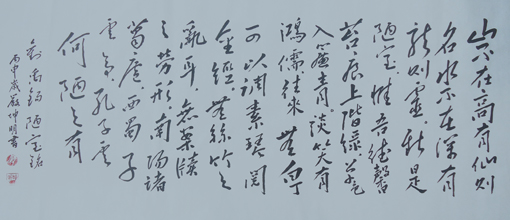 山不在高有仙則
名水不在深有
龍則靈斯是
陋室惟吾德馨
苔痕上階綠草色
入簾青談笑有
鴻儒往來無白丁
可以調素琴閱
金經無絲竹之
亂耳無案牘
之勞形南陽諸
葛廬西蜀子
雲亭孔子云
何陋之有
劉禹錫陋室銘
丙申歲嚴仲明書